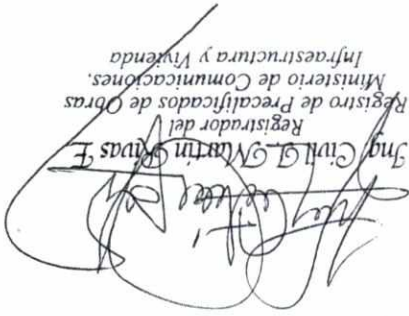 Ing. Civil J. Martín Rivas E.
Registrador del
Registro de Precalificados de Obras
Ministerio de Comunicaciones,
Infraestructura y Vivienda